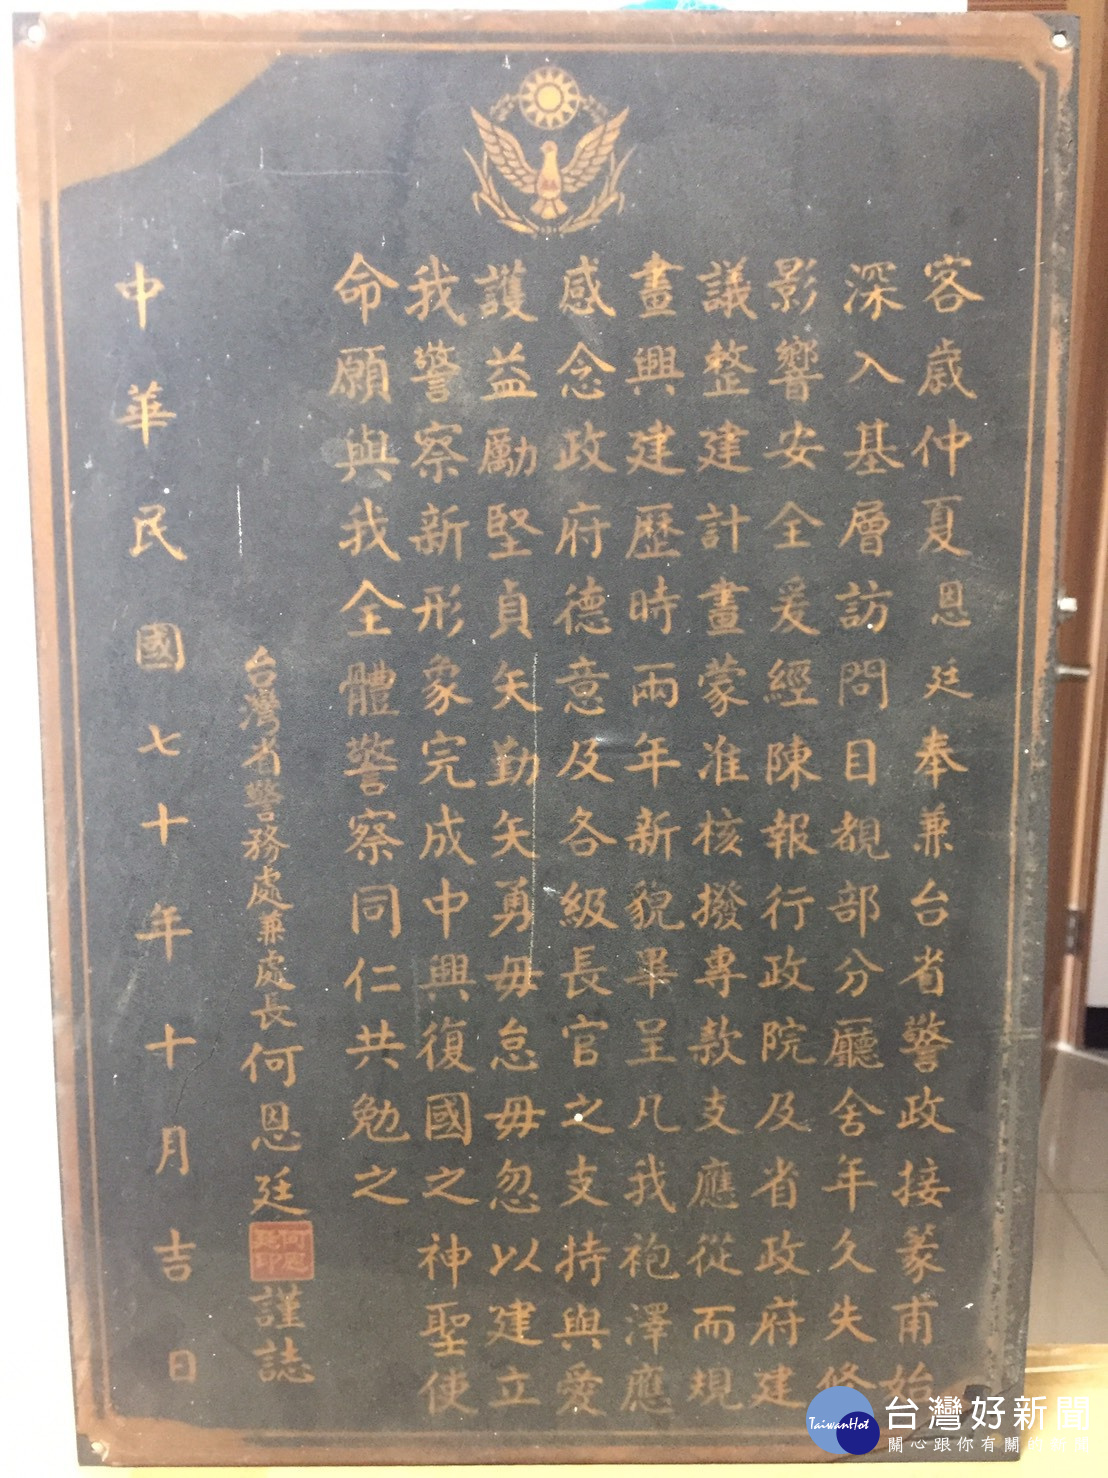 客歲仲夏恩廷奉兼台省警政接篆甫始
深入基層訪問目覩部分廳舍年久失修
影響安全爰經陳報行政院及省政府建
議整建計畫蒙准核撥專款支應從而規
畫興建歷時兩年新貌畢呈凡我袍澤應
感念政府德意及各級長官之支持與愛
護益勵堅貞矢勤矢勇毋怠毋忽以建立
我警察新形象完成中興復國之神聖使
命願與我全體警察同仁共勉之
台灣省警務處兼處長何恩廷謹誌
中華民國七十年十月吉日
TaiwanHot
台灣好新聞
關心跟你有關的新聞